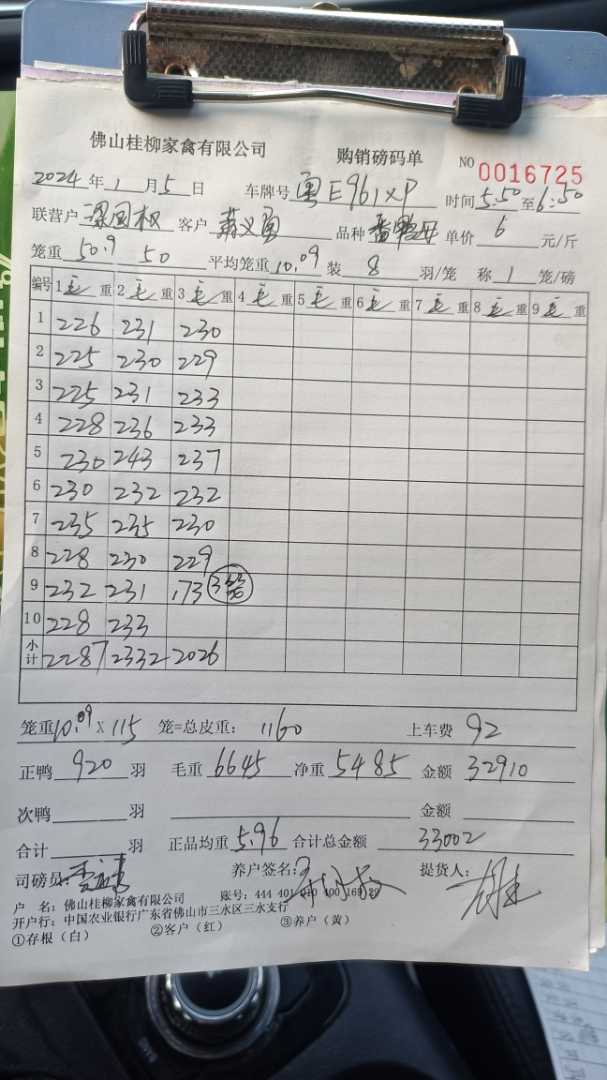 佛山桂柳家禽有限公司 购销磅码单 NO 0016725
2024 年 1 月 5 日 车牌号 粤E961XP 时间 5:50 至 6:50
联营户 客户 品种 番鸭母 单价 6 元/斤
笼重 50.9 50 平均笼重 10.09 装 8 羽/笼 称 1 笼/磅
编号 1 毛 重 2 毛 重 3 毛 重 4 毛 重 5 毛 重 6 毛 重 7 毛 重 8 毛 重 9 毛 重
1 226 231 230
2 225 230 229
3 225 231 233
4 228 236 233
5 230 243 237
6 230 232 232
7 235 235 230
8 228 230 229
9 232 231 173
10 228 233
小计 2287 2332 2026
笼重 10.09 X 115 笼=总皮重: 1160 上车费 92
正鸭 920 羽 毛重 6645 净重 5485 金额 32910
次鸭 羽 金额
合计 羽 正品均重 5.96 合计总金额 33002
司磅员: 养户签名: 提货人:
户 名: 佛山桂柳家禽有限公司 账号: 444 401
开户行: 中国农业银行广东省佛山市三水区三水支行
①存根（白） ②客户（红） ③养户（黄）